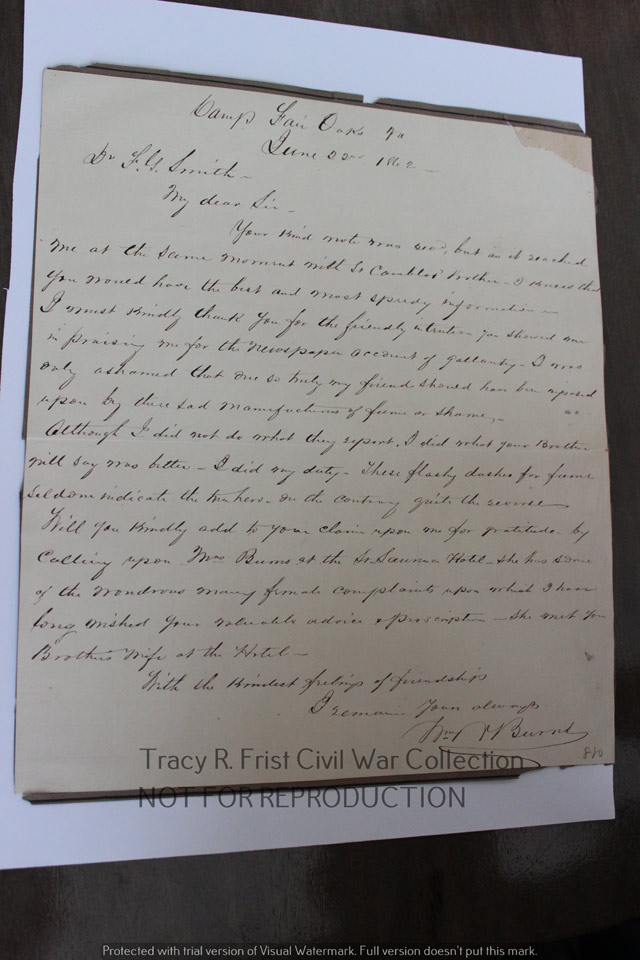 Camp Fair Oaks Va
June 22nd 1862 -
Dr F. G. Smith -
My dear Sir -
Your kind note was recd, but as it reached
me at the same moment with brother - I knew that
you would have the best and most speedy information -
I must kindly thank you for the friendly intention you showed me
in praising me for the Newspaper account of gallantry - I was
only ashamed that one so truly my friend should have been imposed
upon by these sad manufactures of fame or shame, -
Although I did not do what they report, I did what your Brother
will say was better - I did my duty - These flashy dashes for fame
seldom indicate the true hero - on the contrary quite the reverse
Will you kindly add to your claim upon me for gratitude by
calling upon Mrs Burns at the Hotel - she has some
of the wondrous many female complaints upon which I have
long wished your valuable advice & prescription - She met your
Brothers Wife at the Hotel -
With the kindest feelings of friendship
I remain Yours always
Wm W Burns
810
Tracy R. Frist Civil War Collection
NOT FOR REPRODUCTION
Protected with trial version of Visual Watermark. Full version doesn't put this mark.